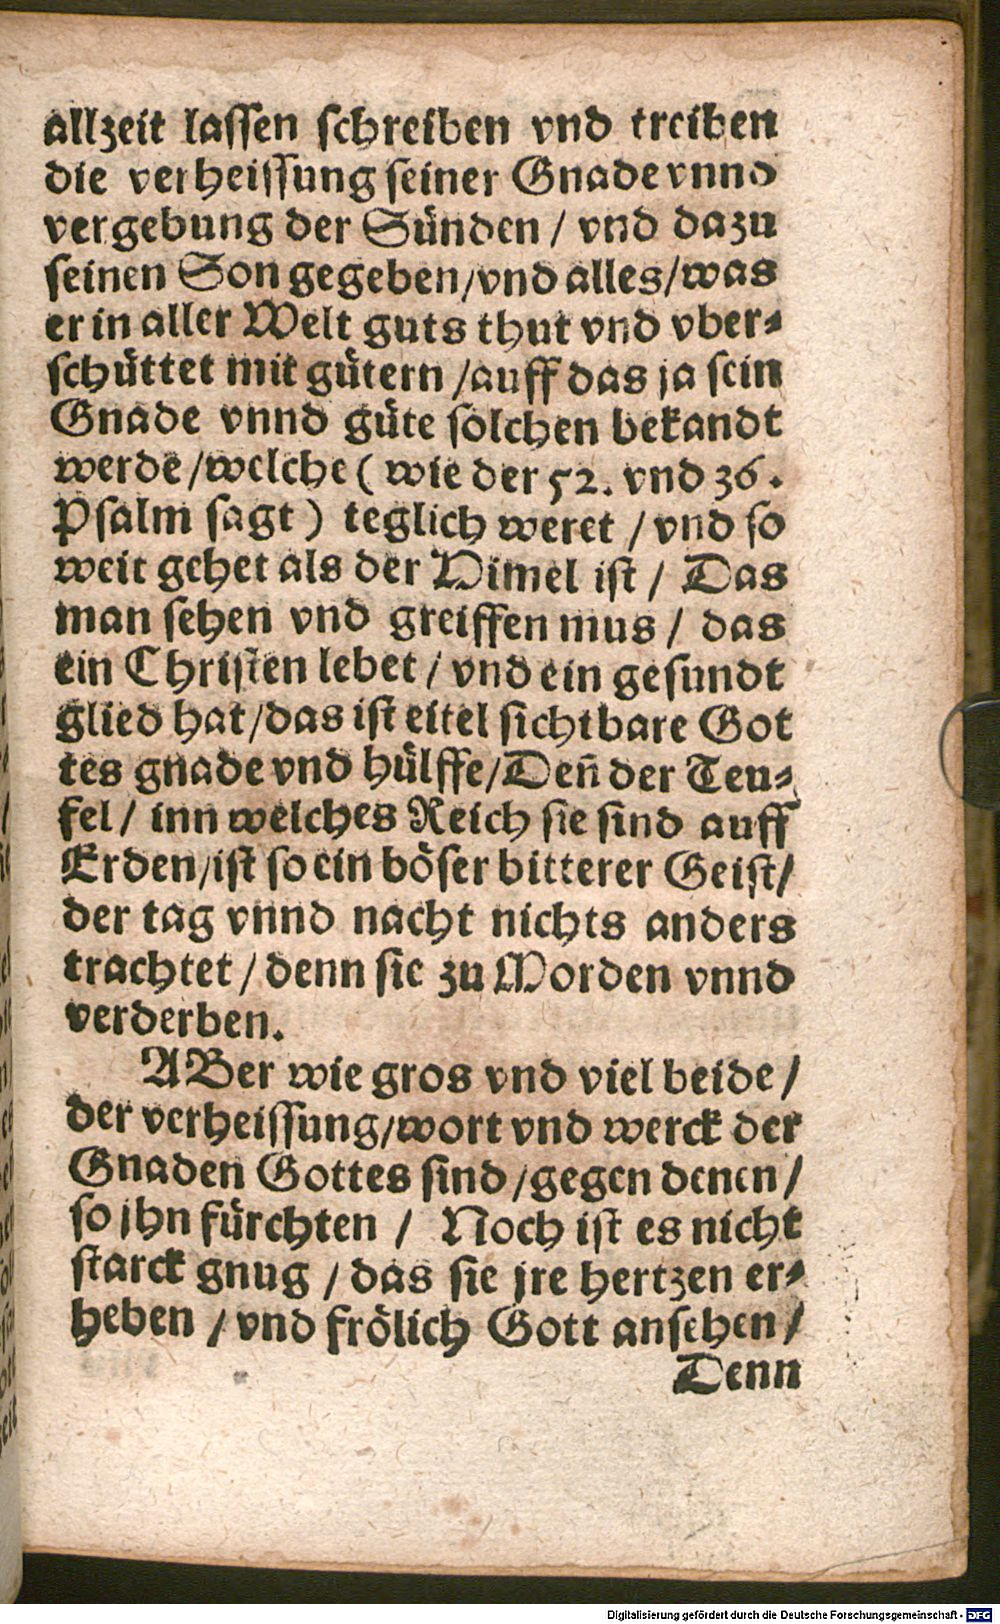 allzeit lassen schreiben vnd treiben
die verheissung seiner Gnade vnnd
vergebung der Sünden / vnd dazu
seinen Son gegeben/vnd alles/was
er in aller Welt guts thut vnd vber-
schüttet mit gütern /auff das ja sein
Gnade vnnd güte solchen bekandt
werde /welche ( wie der 52. vnd 36.
Psalm sagt) teglich weret / vnd so
weit gehet als der Himel ist / Das
man sehen vnd greiffen mus / das
ein Christen lebet / vnd ein gesundt
glied hat/das ist eitel sichtbare Got
tes gnade vnd hülffe/Deñ der Teu-
fel / inn welches Reich sie sind auff
Erden/ist so ein böser bitterer Geist/
der tag vnnd nacht nichts anders
trachtet / denn sie zu Morden vnnd
verderben.
ABer wie gros vnd viel beide /
der verheissung/wort vnd werck der
Gnaden Gottes sind /gegen denen /
so jhn fürchten / Noch ist es nicht
starck gnug / das sie jre hertzen er-
heben / vnd frölich Gott ansehen /
Denn
Digitalisierung gefördert durch die Deutsche Forschungsgemeinschaft - DFG